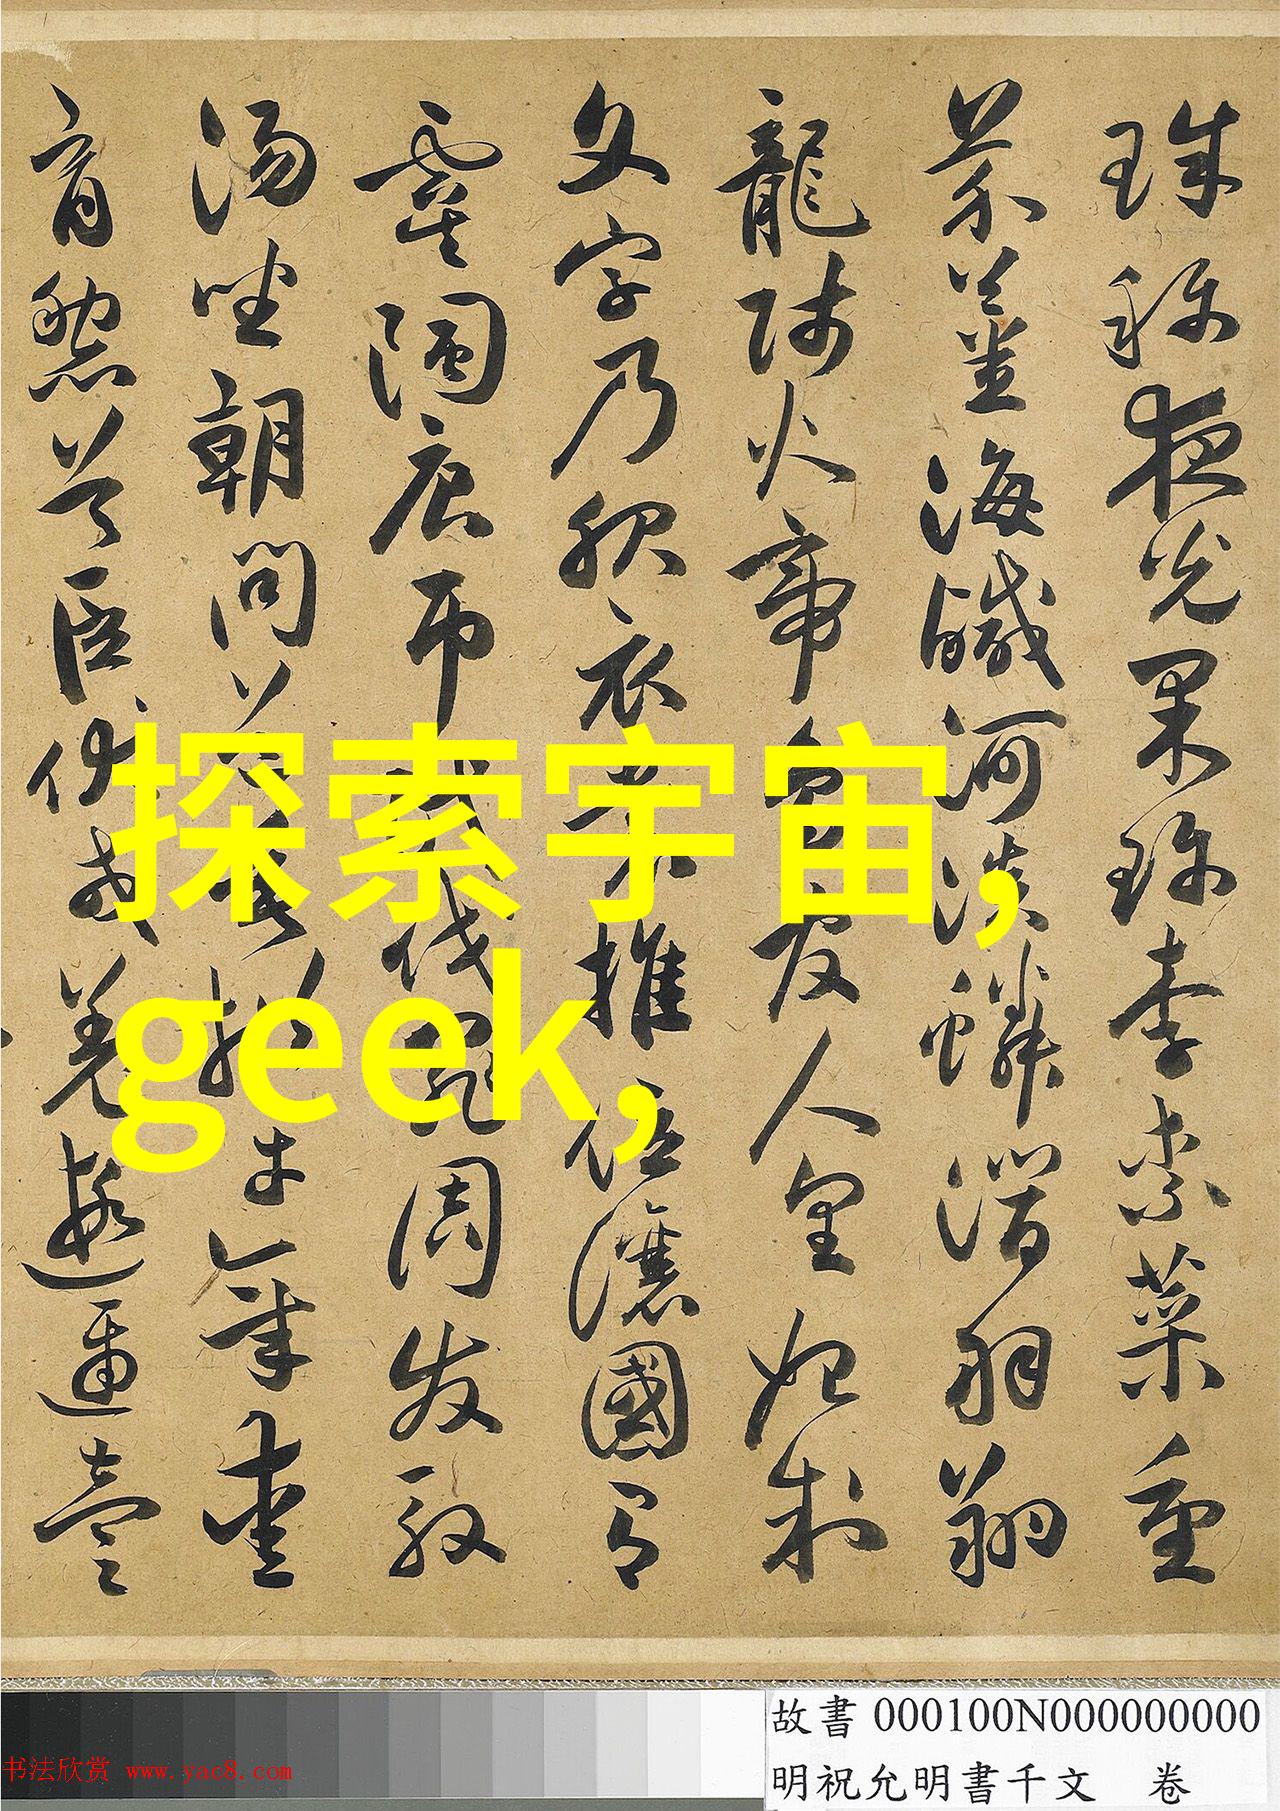 珠稱夜光果珍李柰菜重
芥薑海鹹河淡鱗潛羽翔
龍師火帝鳥官人皇始制
文字乃服衣裳推位讓國有
虞陶唐弔民伐罪周發殷
湯坐朝問道垂拱平章愛
育黎首臣伏戎羌遐邇壹
探索宇宙,
geek,
故書 000100N000000000
明祝允明書千文 卷
书法欣赏 www.yac8.com